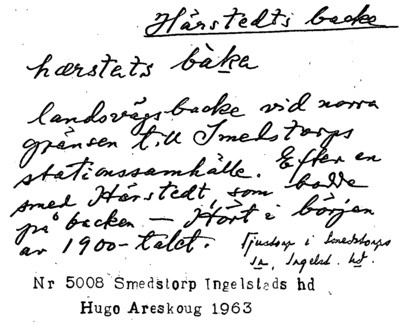 Hårstedts backe
hærstats bàka
landsvägsbacke vid norra
gränsen till Smedstorps
stationssamhälle. Efter en
smed Hårstedt, som bodde
på backen – Hört i början
av 1900-talet. i Smedstorps
sn, Ingelst. hd.
Nr 5008 Smedstorp Ingelstads hd
Hugo Areskoug 1963